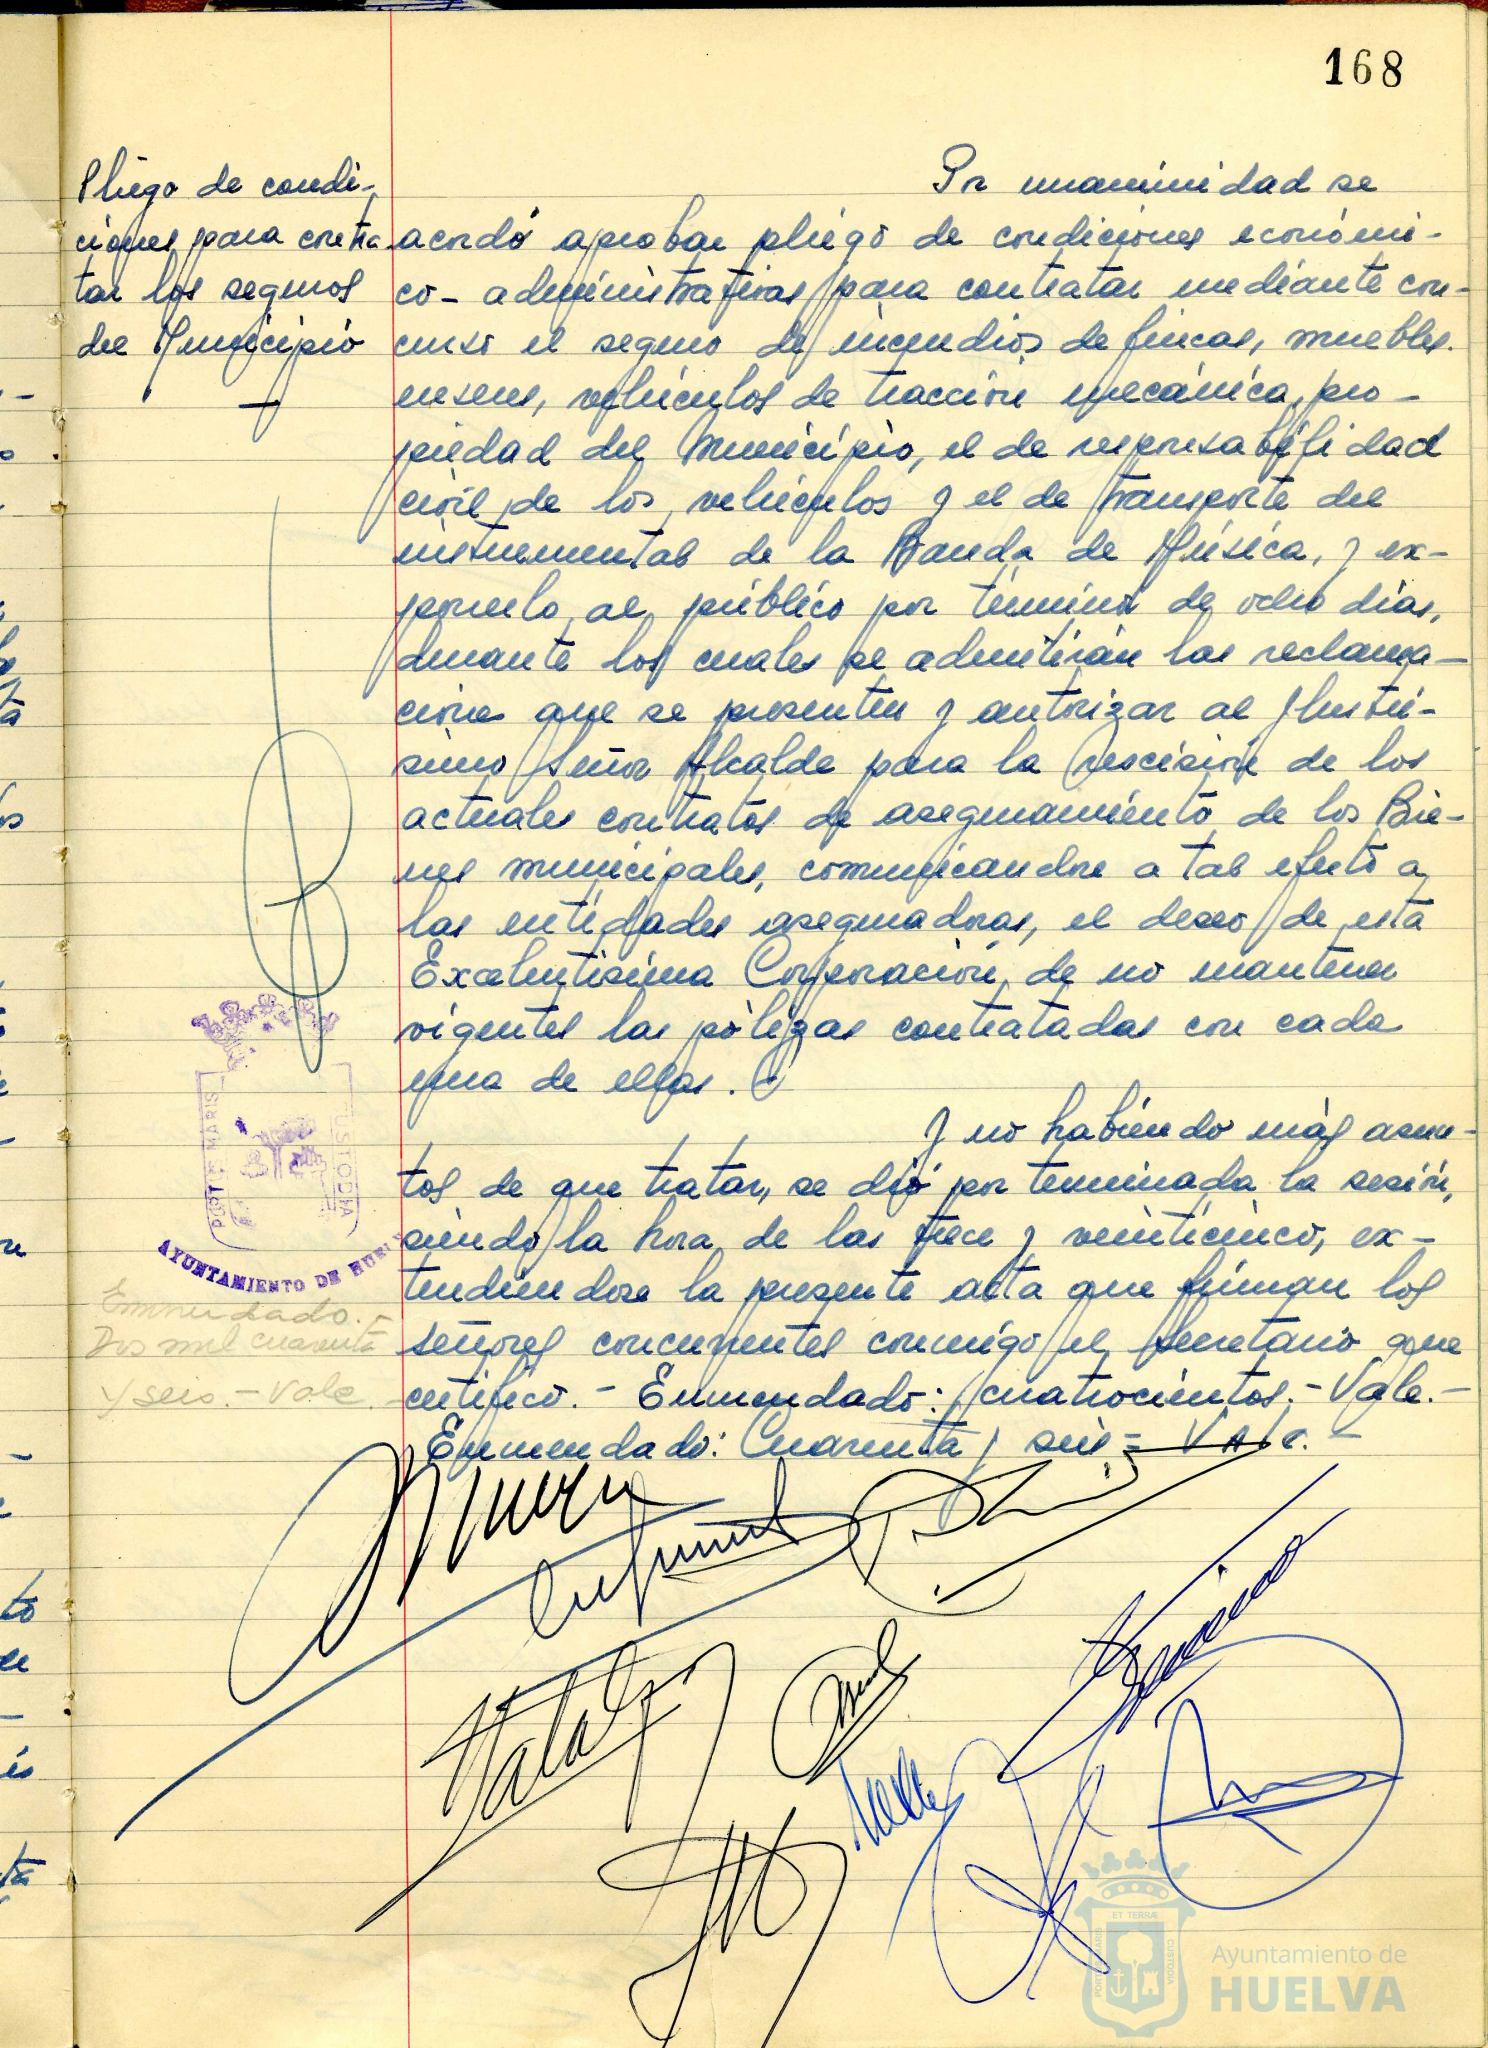 168
Pliego de condi-
ciones para contra
tar los seguros
del Municipio
Por unanimidad se
acordó aprobar pliego de condiciones económi-
co-administrativas para contratar mediante con-
curso el seguro de incendios de fincas, muebles.
enseres, vehículos de tracción mecánica, pro-
piedad del Municipio, el de responsabilidad
civil de los vehículos y el de transporte del
instrumental de la Banda de Música, y ex-
ponerlo al público por término de ocho días,
durante los cuales se admitirán las reclama-
ciones que se presenten y autorizar al Ilustrí-
simo Señor Alcalde para la rescisión de los
actuales contratos de aseguramiento de los Bie-
nes municipales, comunicándose a tal efecto a
las entidades aseguradoras, el deseo de esta
Excelentísima Corporación de no mantener
vigentes las pólizas contratadas con cada
una de ellas.-
Y no habiendo más asun-
tos de que tratar, se dió por terminada la sesión,
siendo la hora de las trece y veinticinco, ex-
tendiéndose la presente acta que firman los
señores concurrentes conmigo el Secretario que
certifico.- Enmendado: cuatrocientos.- Vale.-
Enmendado: Cuarenta y seis - Vale.-
PORTUS MARIS
CUSTODIA
AYUNTAMIENTO DE HUELV
Enmendado.-
Dos mil cuarenta
y seis.- Vale.
ET TERRÆ
PORTUS MARIS
CUSTODIA
Ayuntamiento de
HUELVA